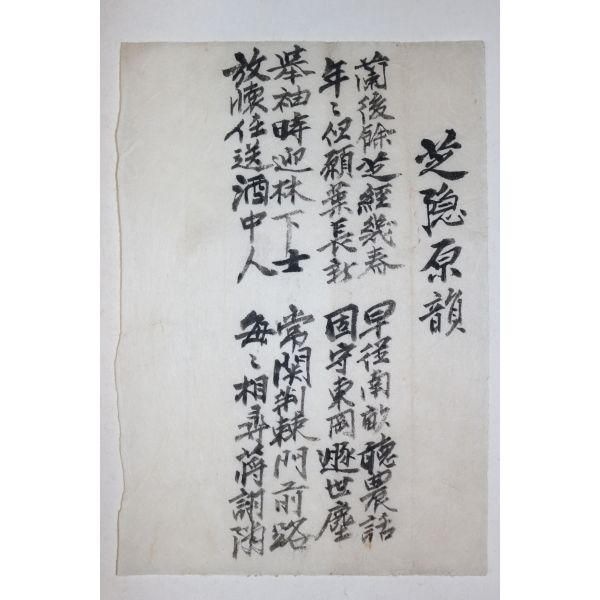 芝隱原韻
蘭後餘芝經幾春
年〻但願葉長新
早從南畝聽農話
固守東岡遯世塵
擧袖時迎林下士
放懷任送酒中人
常関荊棘門前路
每〻相尋蔣詡隣